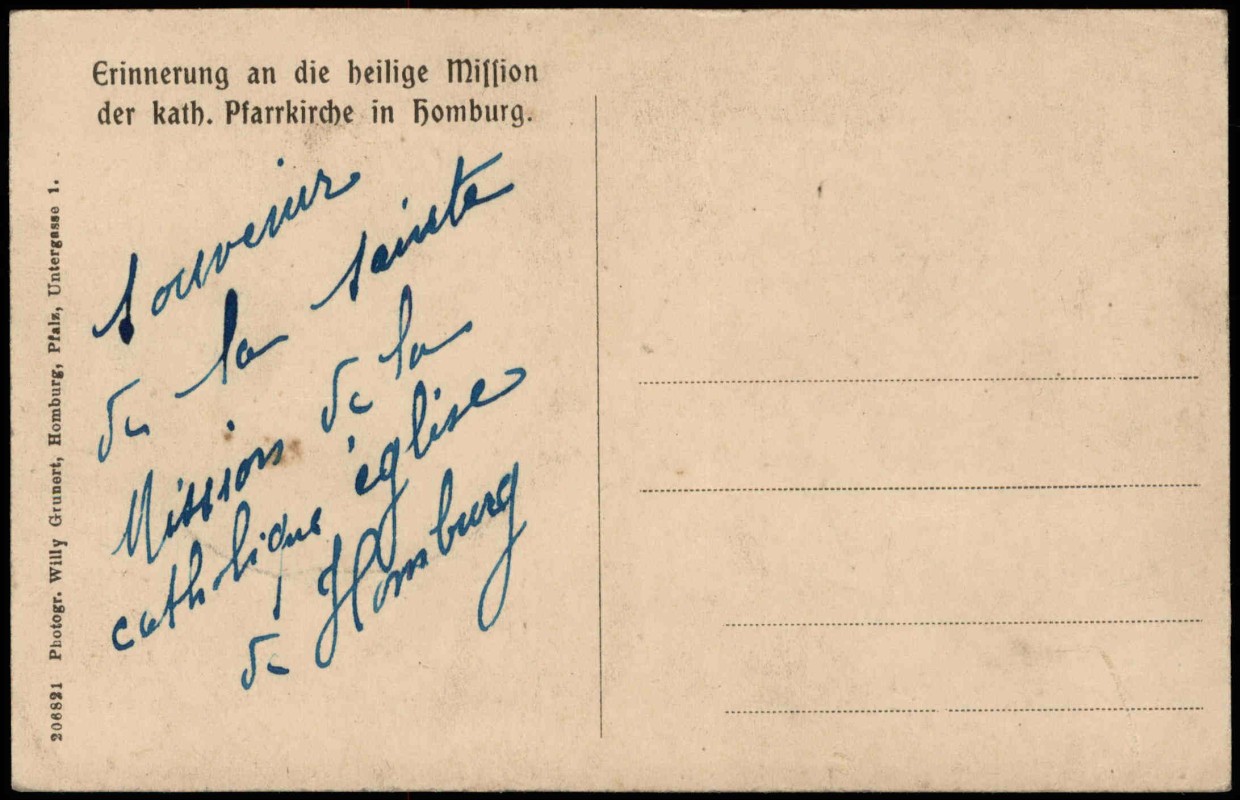 Erinnerung an die heilige Mission
der kath. Pfarrkirche in Homburg.
souvenir
de la sainte
Mission de la
catholique église
de Homburg
206821 Photogr. Willy Grunert, Homburg, Pfalz, Untergasse 1.